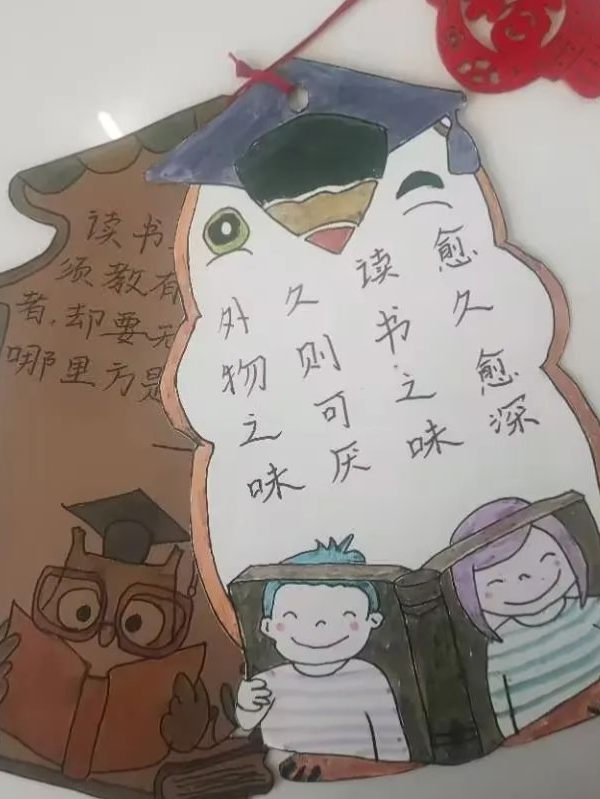 读书
须教有
者，却要无
哪里方是
外物之味
久则可厌
读书之味
愈久愈深